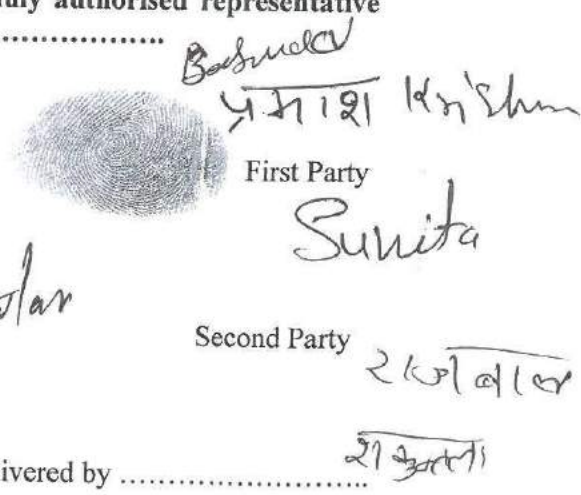 duly authorised representative
....................
Basudev
प्रकाश Krishna
First Party
Sunita
Second Party
राजबाला
शकुन्तला
ivered by ........................